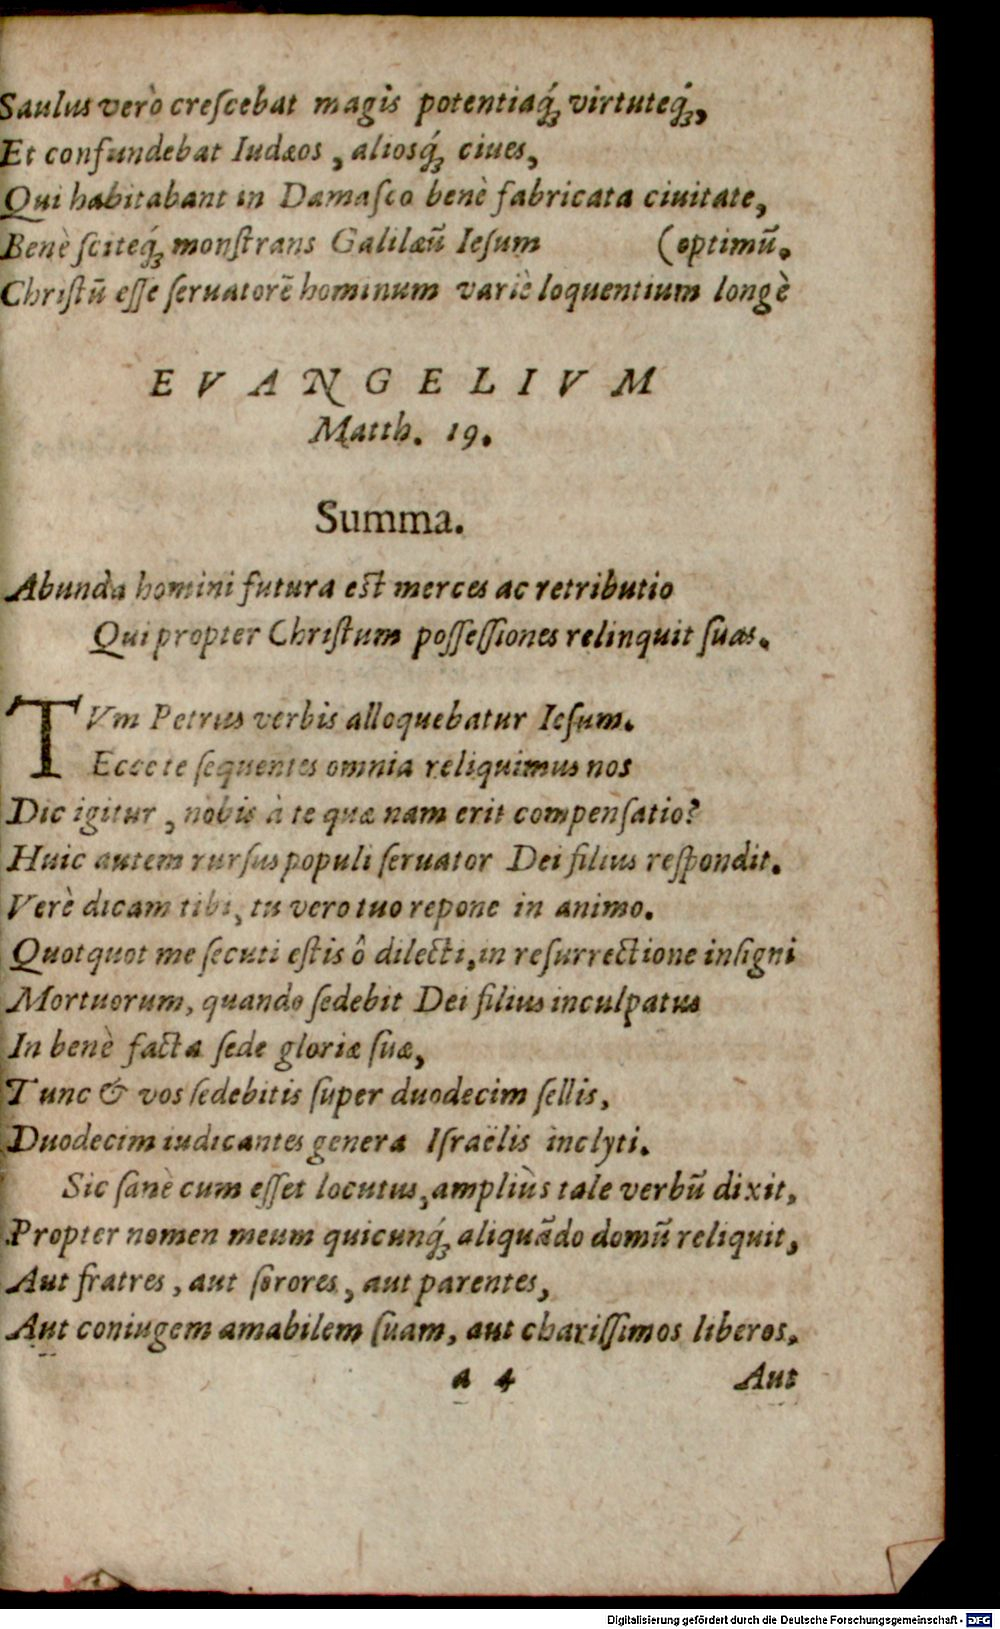 Saulus verò creſcebat magis potentiaq́ꝫ virtuteq́ꝫ,
Et confundebat Iudæos, aliosq́ꝫ ciues,
Qui habitabant in Damaſco benè fabricata ciuitate,
Benè ſciteq́ꝫ monſtrans Galilæū Ieſum (optimū.
Chriſtū eſſe ſeruatorē hominum variè loquentium longè
EVANGELIVM
Matth. 19.
Summa.
Abunda homini futura est merces ac retributio
Qui propter Chriſtum poſſeſſiones relinquit ſuas.
TVm Petrus verbis alloquebatur Ieſum.
Ecce te ſequentes omnia reliquimus nos
Dic igitur, nobis à te quæ nam erit compenſatio?
Huic autem rurſus populi ſeruator Dei filius reſpondit.
Verè dicam tibi, tu vero tuo repone in animo.
Quotquot me ſecuti eſtis ô dilecti, in reſurrectione inſigni
Mortuorum, quando ſedebit Dei filius inculpatus
In benè facta ſede gloriæ ſuæ,
Tunc & vos ſedebitis ſuper duodecim ſellis,
Duodecim iudicantes genera Iſraëlis inclyti.
Sic ſanè cum eſſet locutus, ampliùs tale verbū dixit,
Propter nomen meum quicunq́ꝫ aliquādo domū reliquit,
Aut fratres, aut ſorores, aut parentes,
Aut coniugem amabilem ſuam, aut chariſſimos liberos,
a 4 Aut
Digitalisierung gefördert durch die Deutsche Forschungsgemeinschaft - DFG